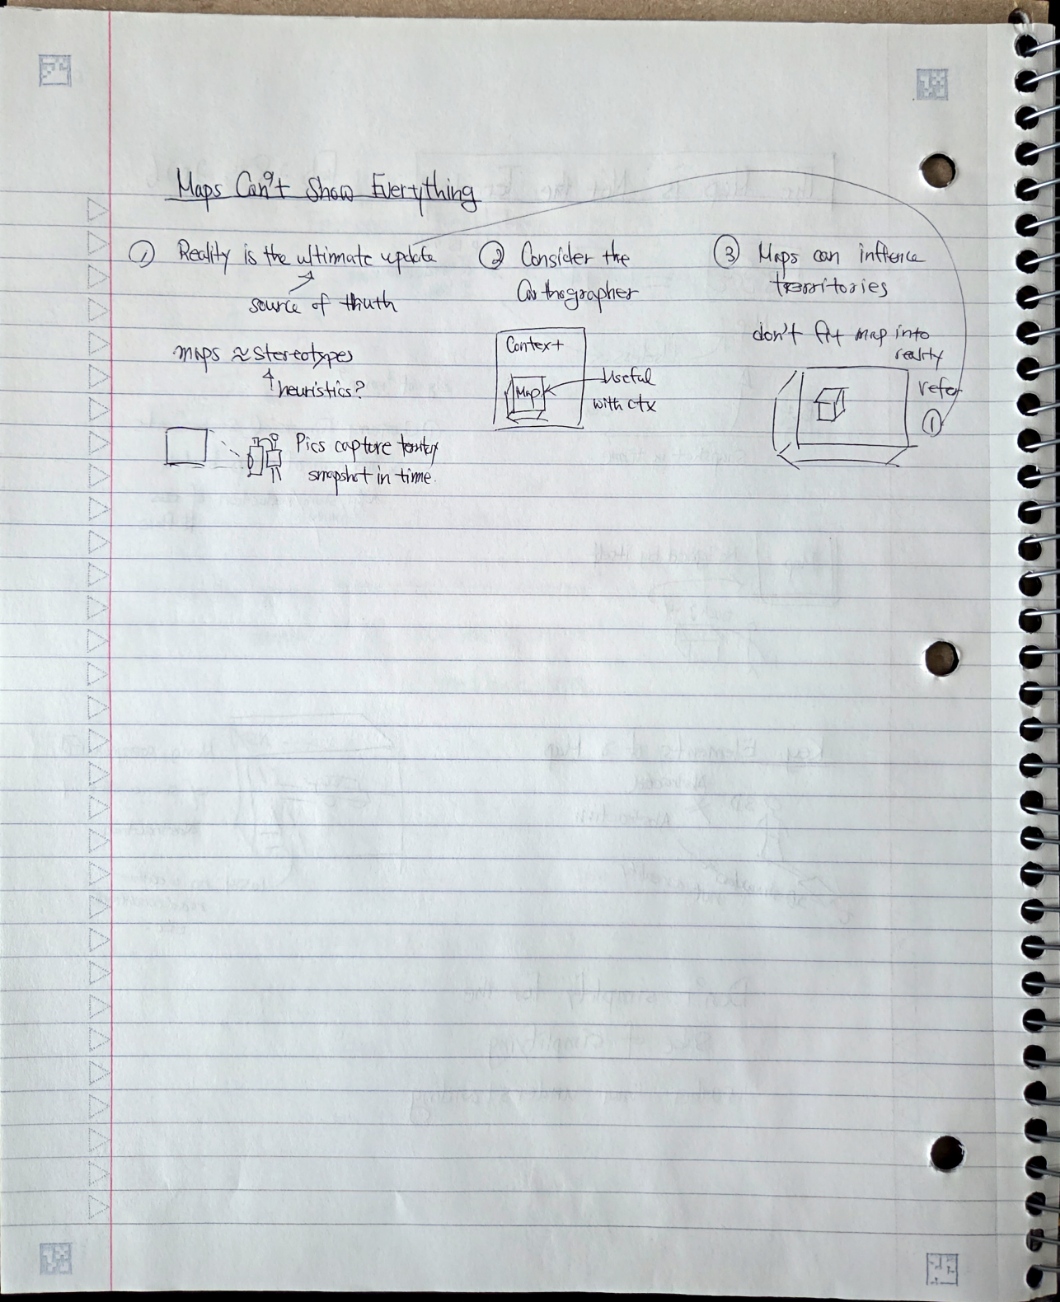 Maps Can't Show Everything
① Reality is the ultimate update
source of thuth
maps ≈ stereotypes
heuristics?
Pics capture
snapshot in time.
② Consider the
Carthographer
Context
Map
Useful
with ctx
③ Maps can inflence
territories
don't fit map into
reality
refer
①